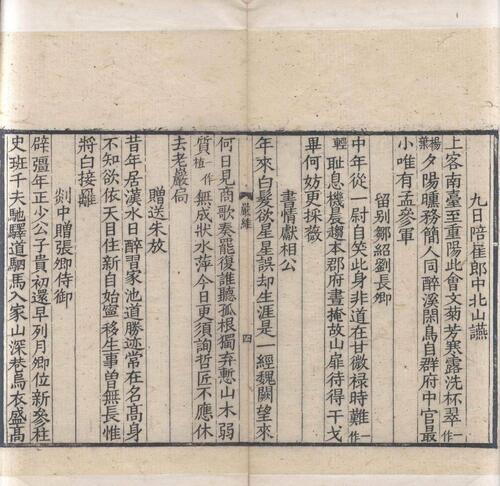 九日陪崔郎中北山讌
上客南臺至重陽此會文菊芳寒露洗杯翠一作
揚葉夕陽曛務簡人同醉溪閑鳥自群府中官最
小唯有孟參軍
留别鄒紹劉長卿
中年從一尉自笑此身非道在甘微禄時難一作
輕恥息機晨趨本郡府晝掩故山扉待得干戈
畢何妨更採薇
書情獻相公
年來白髮欲星星誤却生涯是一經魏闕望來
嚴維
四
何日見商歌奏罷復誰聽孤根獨弃慙山木弱
質一作植無成狀水萍今日更須詢哲匠不應休
去老巖扃
贈送朱放
昔年居漢水日醉習家池道勝迹常在名髙身
不知欲依天目住新自始寧移生事曽無長惟
將白接䍦
剡中贈張卿侍御
辟疆年正少公子貴初還早列月卿位新參柱
史班千夫馳驛道駟馬入家山深巷烏衣盛髙